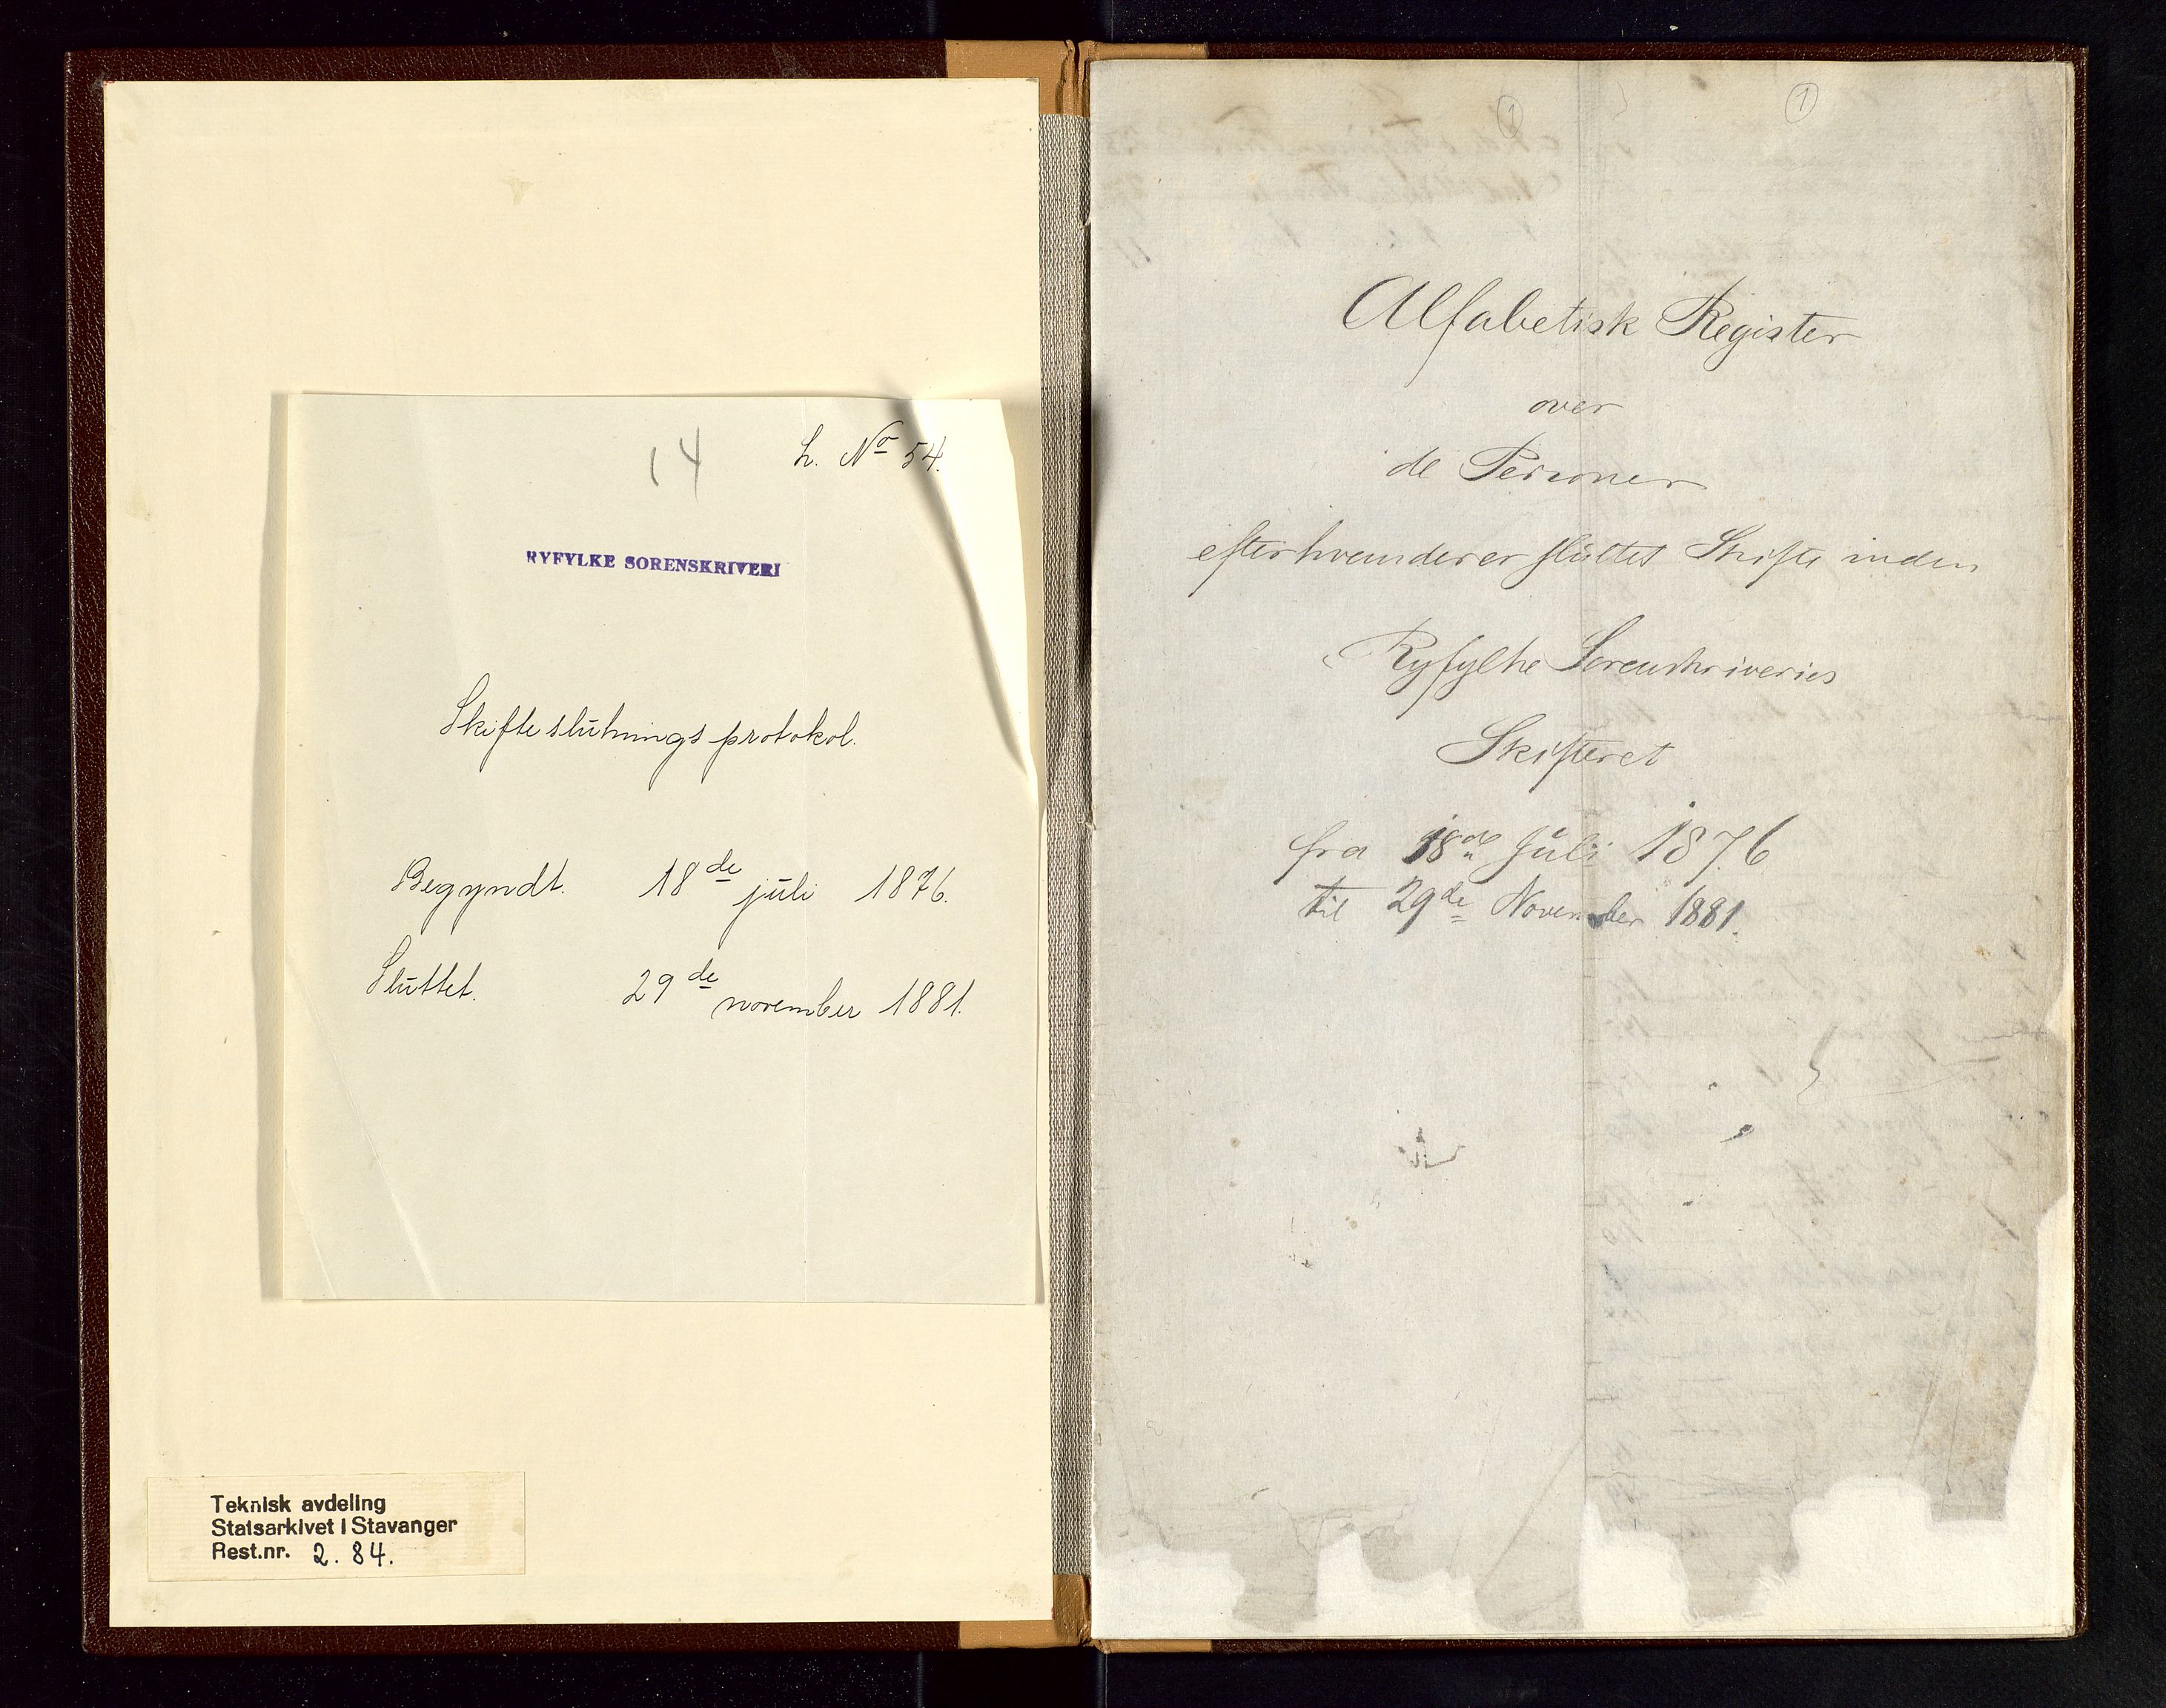 14
L. No 54.
RYFYLKE SORENSKRIVERI
Skifteslutningsprotokol.
Begyndt. 18de juli 1876.
Sluttet. 29de november 1881.
Teknisk avdeling
Statsarkivet i Stavanger
Rest.nr. 2. 84.
1
1
Alfabetisk Register
over
de Personer
efter hvem der er sluttet Skifte inden
Ryfylke Sorenskriveries
Skifteret
fra 18de Juli 1876
til 29de November 1881.